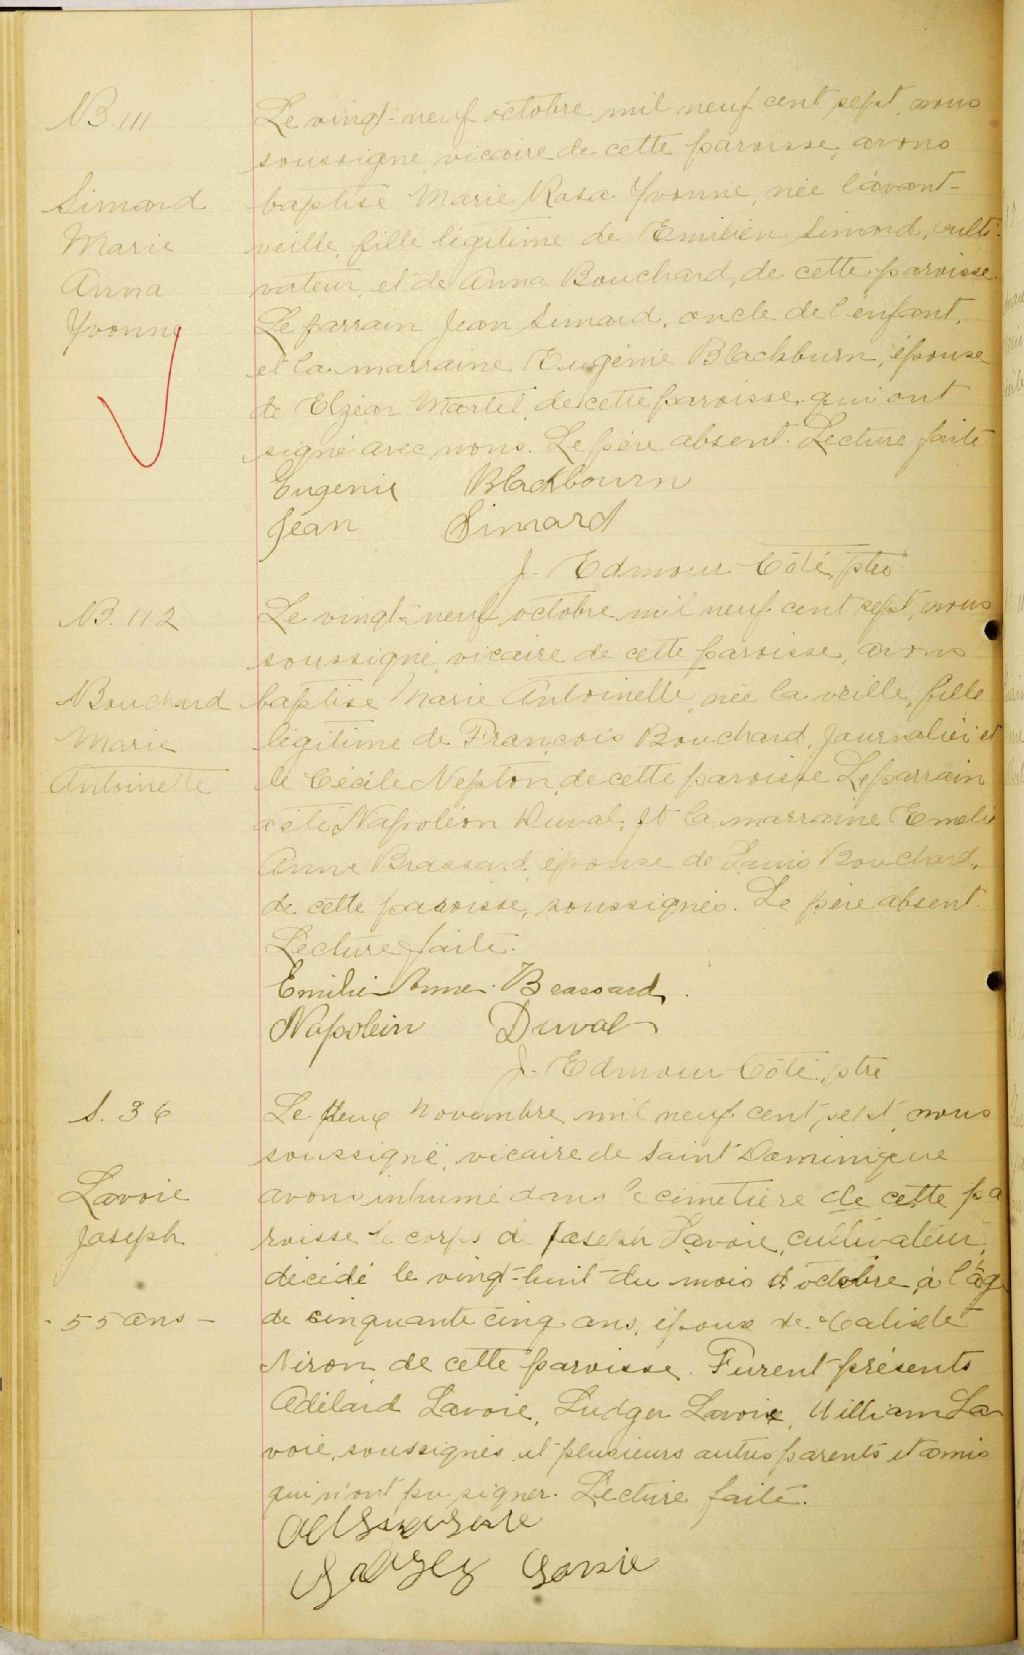 B. 111
Simard
Marie
Anna
Yvonne
Le vingt-neuf octobre mil neuf cent sept, nous
soussigné, vicaire de cette paroisse, avons
baptisé Marie Rosa Yvonne, née l'avant-
veille, fille légitime de Emilien Simard, culti-
vateur, et de Anna Bouchard, de cette paroisse.
Le parrain Jean Simard, oncle de l'enfant,
et la marraine Eugénie Blackburn, épouse
de Elzéar Martel, de cette paroisse, qui ont
signé avec nous. Le père absent. Lecture faite
Eugenie Blackbourn
Jean Simard
J. Edmour Côté, ptre
B. 112
Bouchard
Marie
Antoinette
Le vingt-neuf octobre mil neuf cent sept, nous
soussigné, vicaire de cette paroisse, avons
baptisé Marie Antoinette, née la veille, fille
légitime de François Bouchard, journalier et
de Cécile Nepton, de cette paroisse. Le parrain
a été Napoléon Duval, et la marraine Emelie
Anne Brassard, épouse de Louis Bouchard,
de cette paroisse, soussignés. Le père absent.
Lecture faite.
Emilie Anne Brassard.
Napoléin Duval
J. Edmour Côté, ptre
S. 36
Lavoie
Joseph
- 55 ans -
Le deux Novembre mil neuf cent sept, nous
soussigné, vicaire de Saint Dominique
avons inhumé dans le cimetière de cette pa
roisse le corps de Joseph Lavoie, cultivateur,
décédé le vingt-huit du mois d'octobre, à l'âge
de cinquante cinq ans, époux de Calixte
Niron de cette paroisse. Furent présents
Adélard Lavoie, Ludger Lavoie, William La
voie, soussignés et plusieurs autres parents et amis
qui n'ont pu signer. Lecture faite.
Lavoie